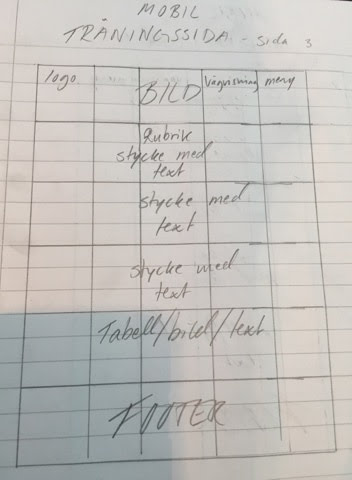 MOBIL
TRÄNINGSSIDA - sida 3
logo. BILD Vägvisning meny
Rubrik
stycke med
text
stycke med
text
stycke med
text
Tabell/bild/text
FOOTER